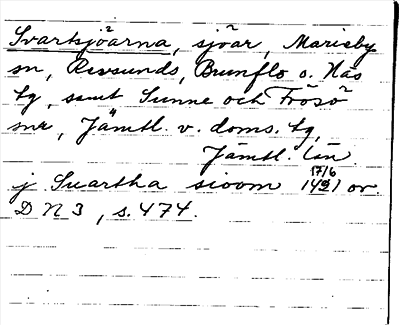 Svartsjöarna, sjöar, Marieby
sn, Revsunds, Brunflo o. Näs
tg, samt Sunne och Frösö
snr, Jämtl. v. doms. tg,
Jämtl. län.
j Suartha sioom 17/6 1491 or.
D N 3, s. 474.